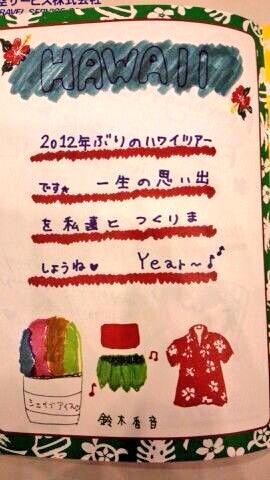 サービス株式会社
TRAVEL SERVICE
HAWAII
2012年ぶりのハワイツアー
です★ 一生の思い出
を私達とつくりま
しょうね♥ Year〜♪♪
シェイブアイス
鈴木香音